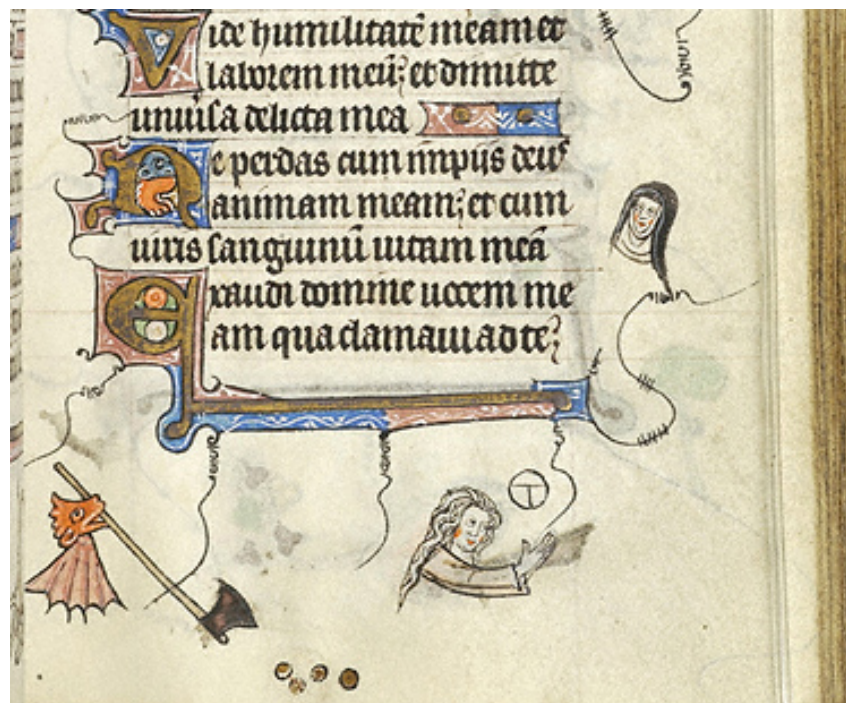 Vide humilitatē meam et
laborem meū: et dimitte
uniuersa delicta mea
Ne perdas cum impiis deus
animam meam: et cum
uiris sanguinū uitam meā
Exaudi domine uocem me
am qua clamaui ad te:
T